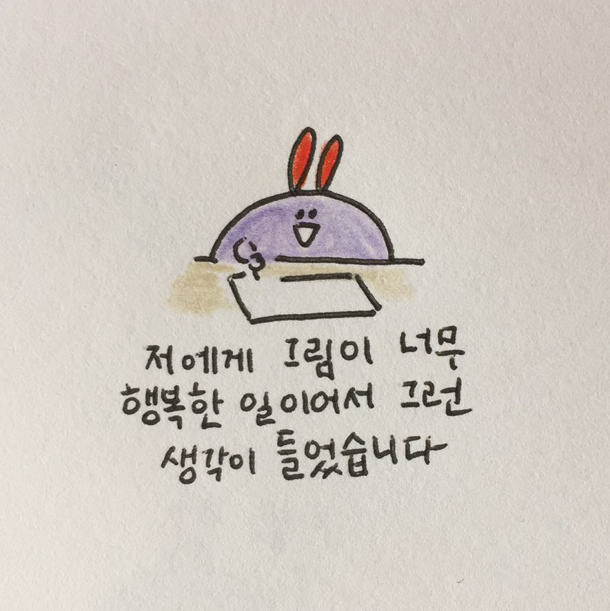 저에게 그림이 너무
행복한 일이어서 그런
생각이 들었습니다